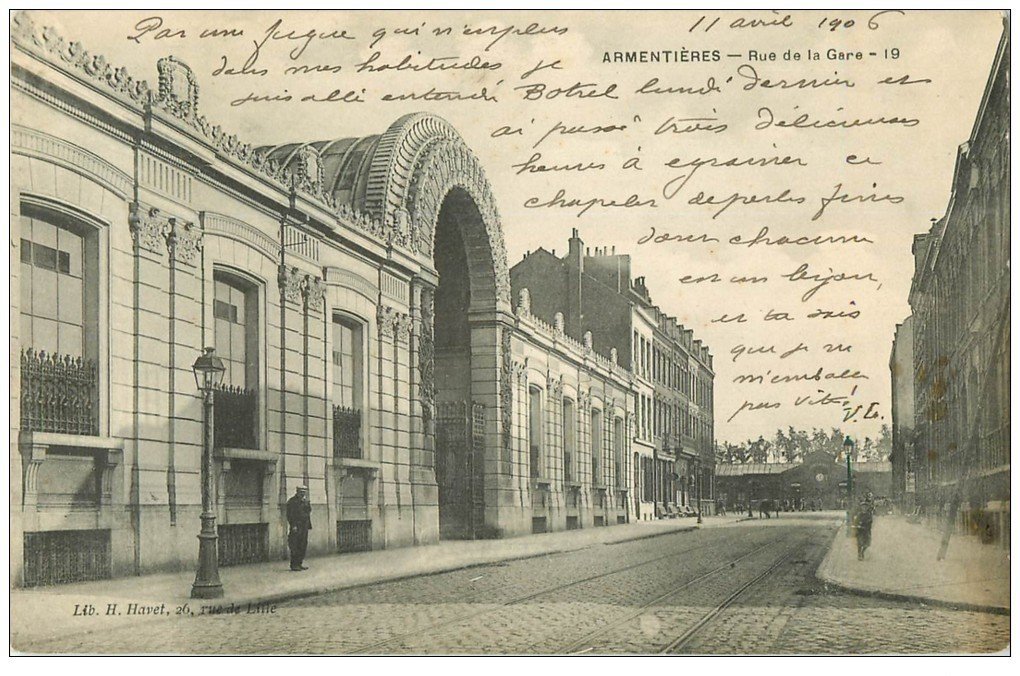 11 avril 1906
Par une fugue qui n'est plus
dans mes habitudes je
suis allé entendre Botrel lundi dernier et
ai passé trois délicieuses
heures à egrainer ce
chapelet de perles fines
dont chacune
est un bijou,
et tu sais
que je ne
m'emballe
pas vite!
ARMENTIÈRES — Rue de la Gare - 19
Lib. H. Havet, 26, rue de Lille